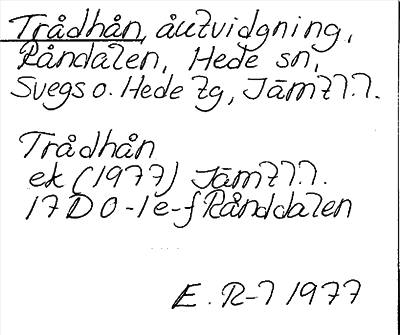 Trådhån, åutvidgning,
Råndalen, Hede sn,
Svegs o. Hede tg, Jämtl.l.
Trådhån
ek (1977) Jämtl.l.
17D 0-1e-f Rånddalen
E. R-l 1977